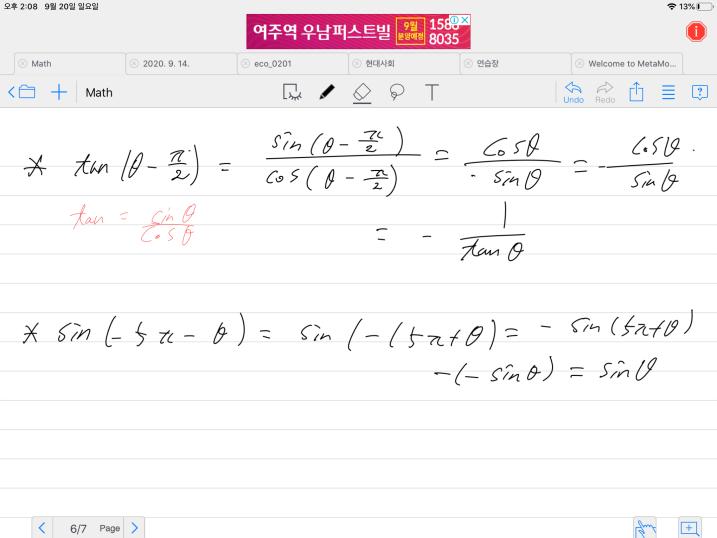 오후 2:08 9월 20일 일요일
13%
여주역 우남퍼스트빌 9월 분양예정 1588 8035
Math 2020. 9. 14. eco_0201 현대사회 연습장 Welcome to MetaMo...
Math T Undo Redo
* tan(θ - π/2) = sin(θ - π/2)/cos(θ - π/2) = cosθ/-sinθ = - cosθ/sinθ.
tan = sinθ/cosθ
= - 1/tanθ
* sin(-5π - θ) = sin(-(5π+θ) = - sin(5π+θ)
-(-sinθ) = sinθ
6/7 Page